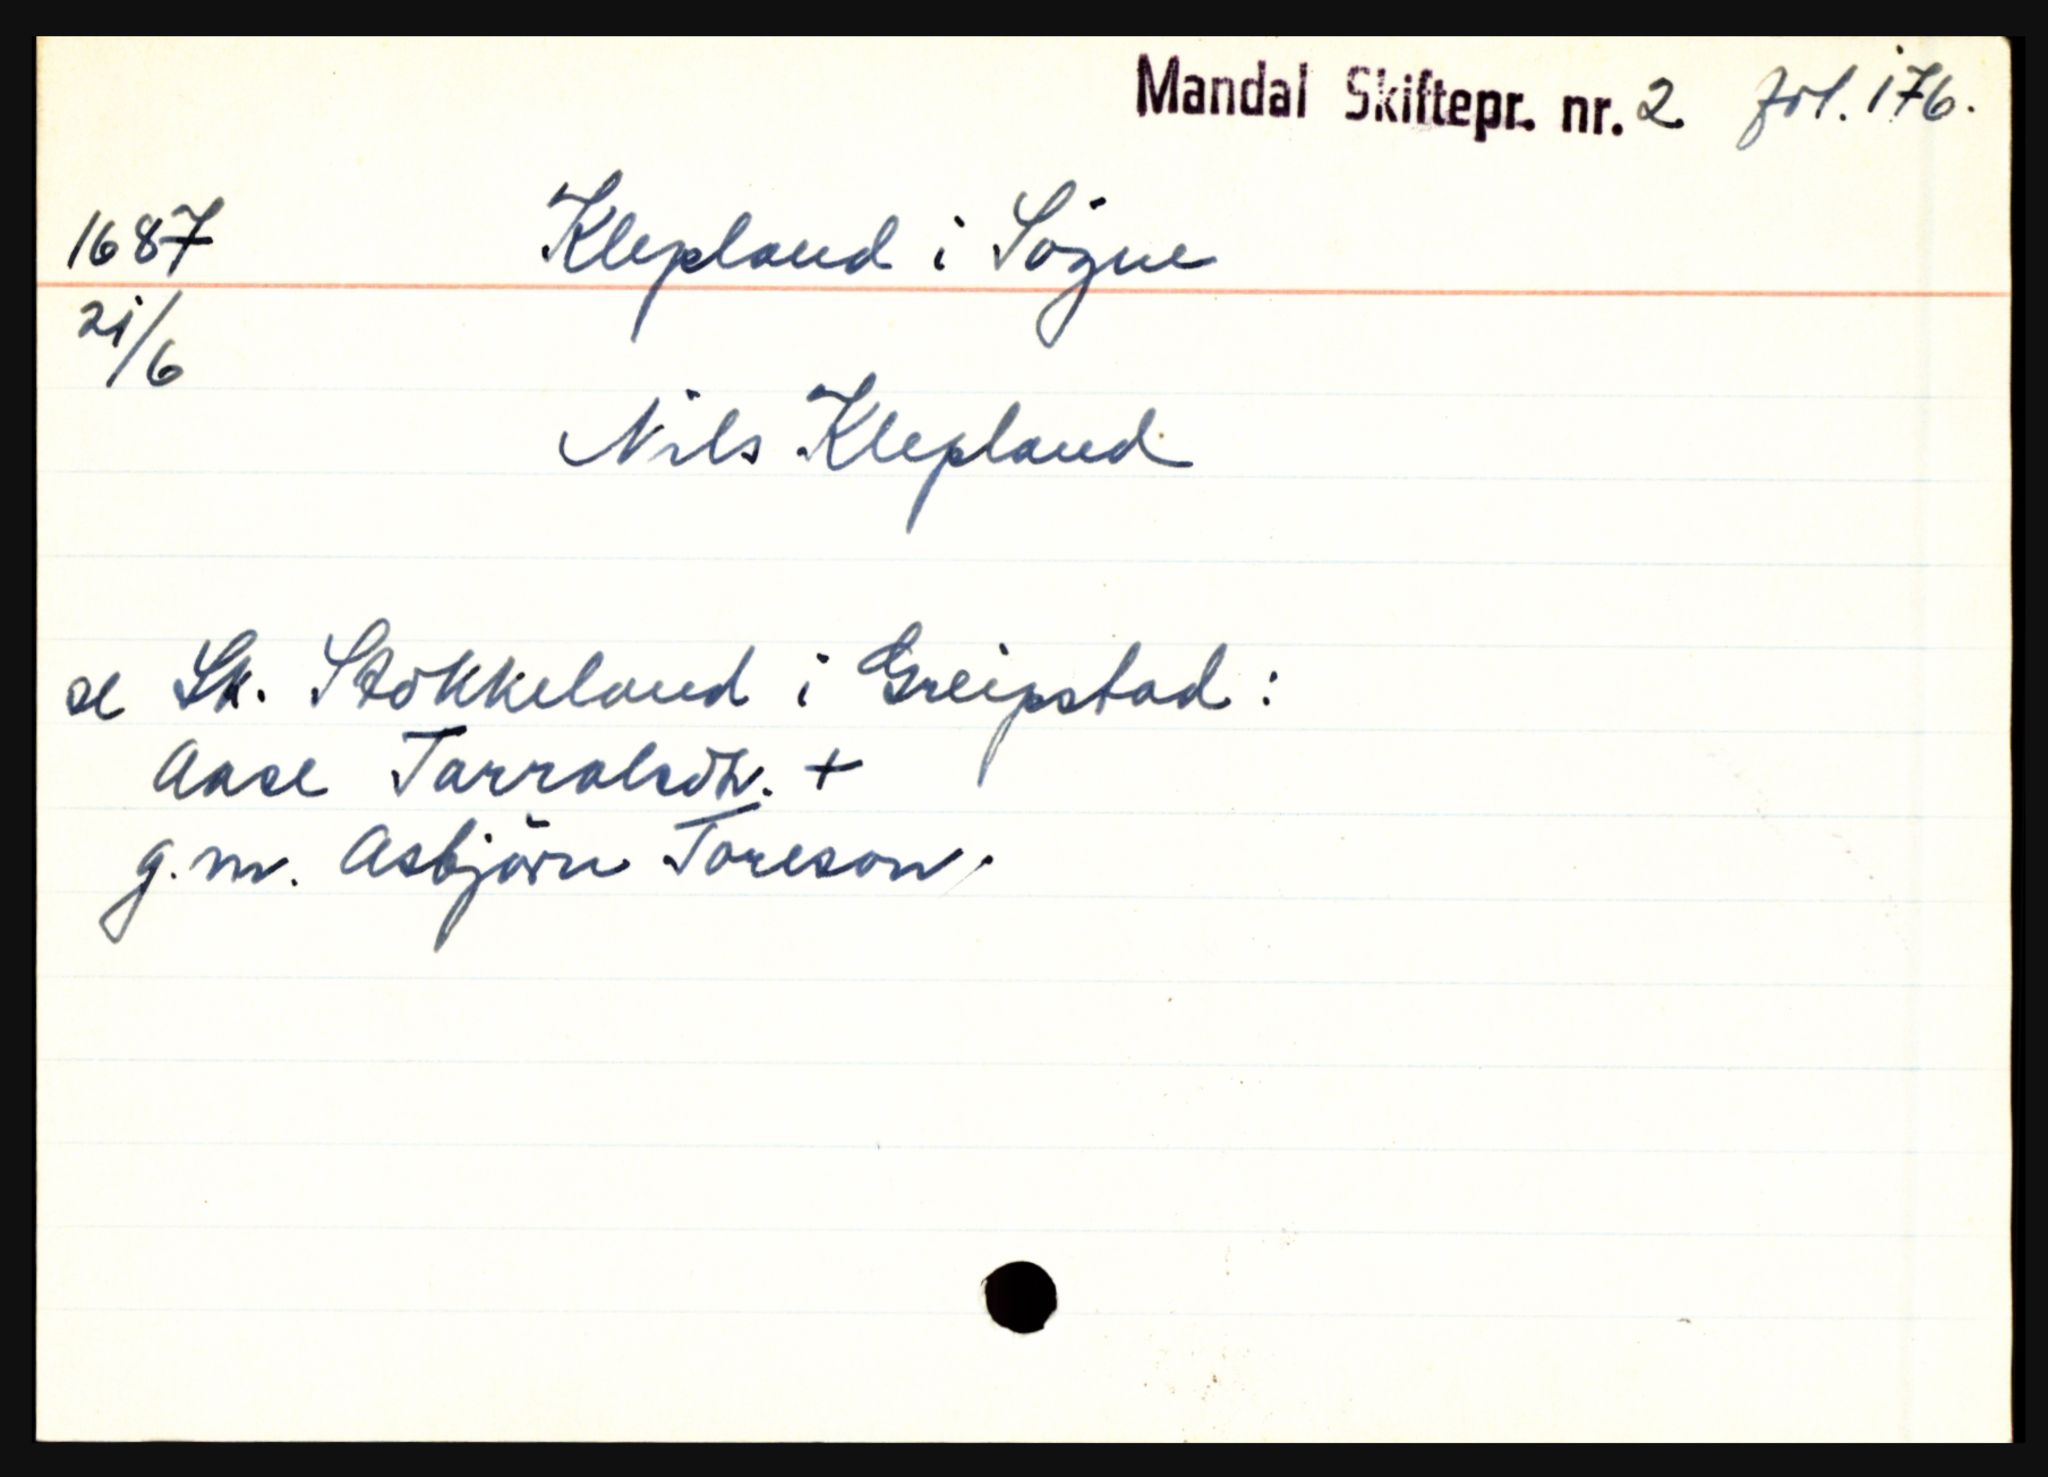 Mandal Skiftepr. nr. 2 fol. 176.
1687 Klepland i Sögne
21/6
Nils Klepland
se St. Stökkeland i Greipstad:
Aase Tarralsdtr. +
g.m. Asbjörn Toreson.